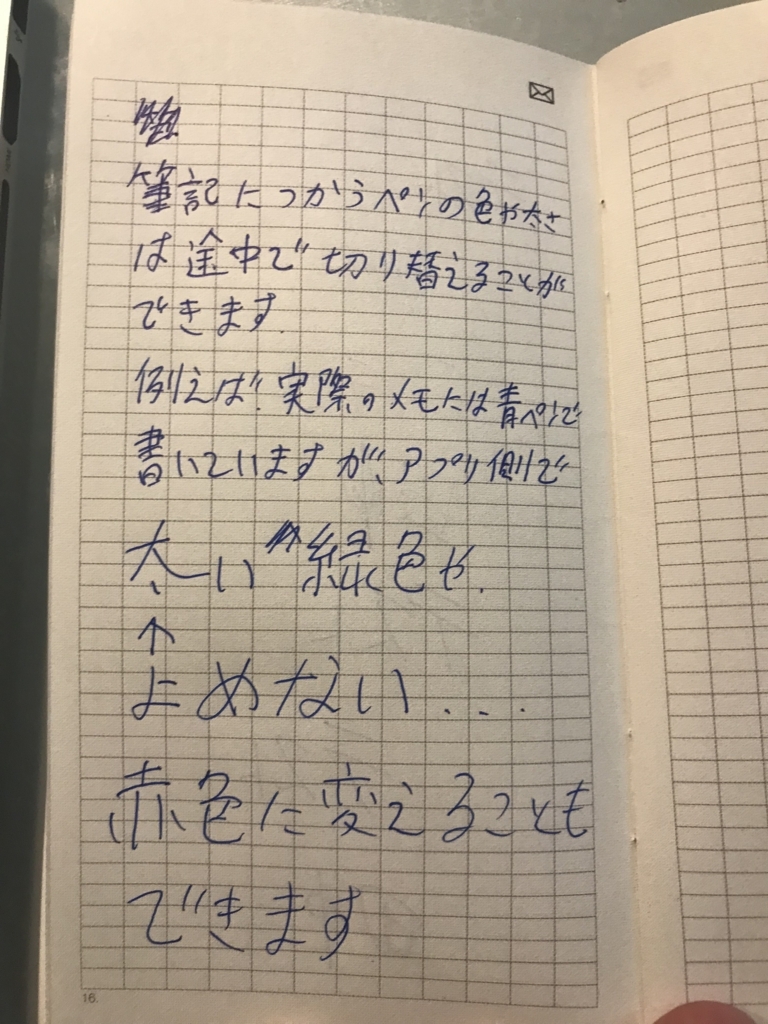 筆記につかうペンの色や太さ
は途中で切り替えることが
できます.
例えば、実際のメモには青ペンで
書いていますが、アプリ側で
太い 緑色や、
↑
よめない...
赤色に変えることも
できます
16.